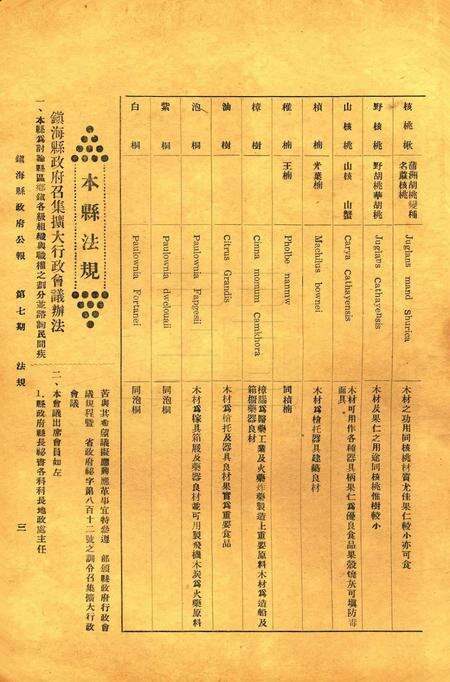 核桃楸 滿洲胡桃變種 名蘆核桃 Juglans mand Shurica 木材之功用同核桃材質木佳果仁較小亦可食
野核桃 野胡桃華胡桃 Juglans Cathayebsis 木材及果仁之用途同核桃惟樹較小
山核桃 山核 山蟹 Carya Cathayensis 木材可用作各種器具柄果仁爲優良食品果殼燒灰可塡防毒面具
楨楠 光葉楠 Machhus bownei 木材爲槍托器具建築良材
稚楠 王楠 Pholbe nanmw 同楨楠
樟樹 Cinna monum Camkhora 樟腦爲醫藥工業及火藥炸藥製造上重要原料木材爲造船及箱櫃藥器良材
油樹 Citrus Grandis 木材爲槍托及器具良材果實爲重要食品
泡桐 Paulowvnia Fapgesii 木材爲傢具箱屐及藥器良材並可用製飛機木炭爲火藥原料
紫桐 Paulowvnia dwelouaii 同泡桐
白桐 Paulowvnia Fortanei 同泡桐
本縣法規
鎮海縣政府召集擴大行政會議辦法
一、本縣爲討論縣區鄉鎮各級組機與職權之劃分並諮詢民間疾
苦與其希望議擬應興應革事宜特參遵 部頒縣政府行政會
議規程暨 省政府祕字第八百十二號之訓令召集擴大行政
會議
二、本會議出席會員如左
1.縣政府縣長祕書各科科長地政處主任
鎮海縣政府公報 第七期 法規 三